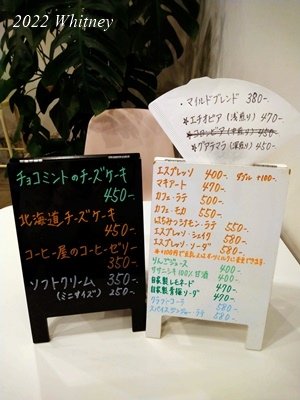 2022 Whitney
・マイルドブレンド 380-.
※エチオピア(浅煎り) 470-.
※コロンビア(中煎り) 450-
※グアテマラ(深煎り) 450-.
チョコミントのチーズケーキ
450-.
北海道チーズケーキ
450-.
コーヒー屋のコーヒーゼリー
350-.
ソフトクリーム 350-.
(ミニサイズ) 250-.
エスプレッソ 400-. ダブル +100-.
マキアート 470-.
カフェ・ラテ 500-.
カフェ・モカ 550-.
はちみつシナモン・ラテ 550-.
エスプレッソ・シェイク 580-.
エスプレッソ・ソーダ 580-.
りんごジュース 400-.
ササニシキ100%甘酒 400-.
自家製レモネード 470-.
自家製青梅ソーダ 470-.
クラフトコーラ 580-.
スパイスジンジャー・ラテ 580-.